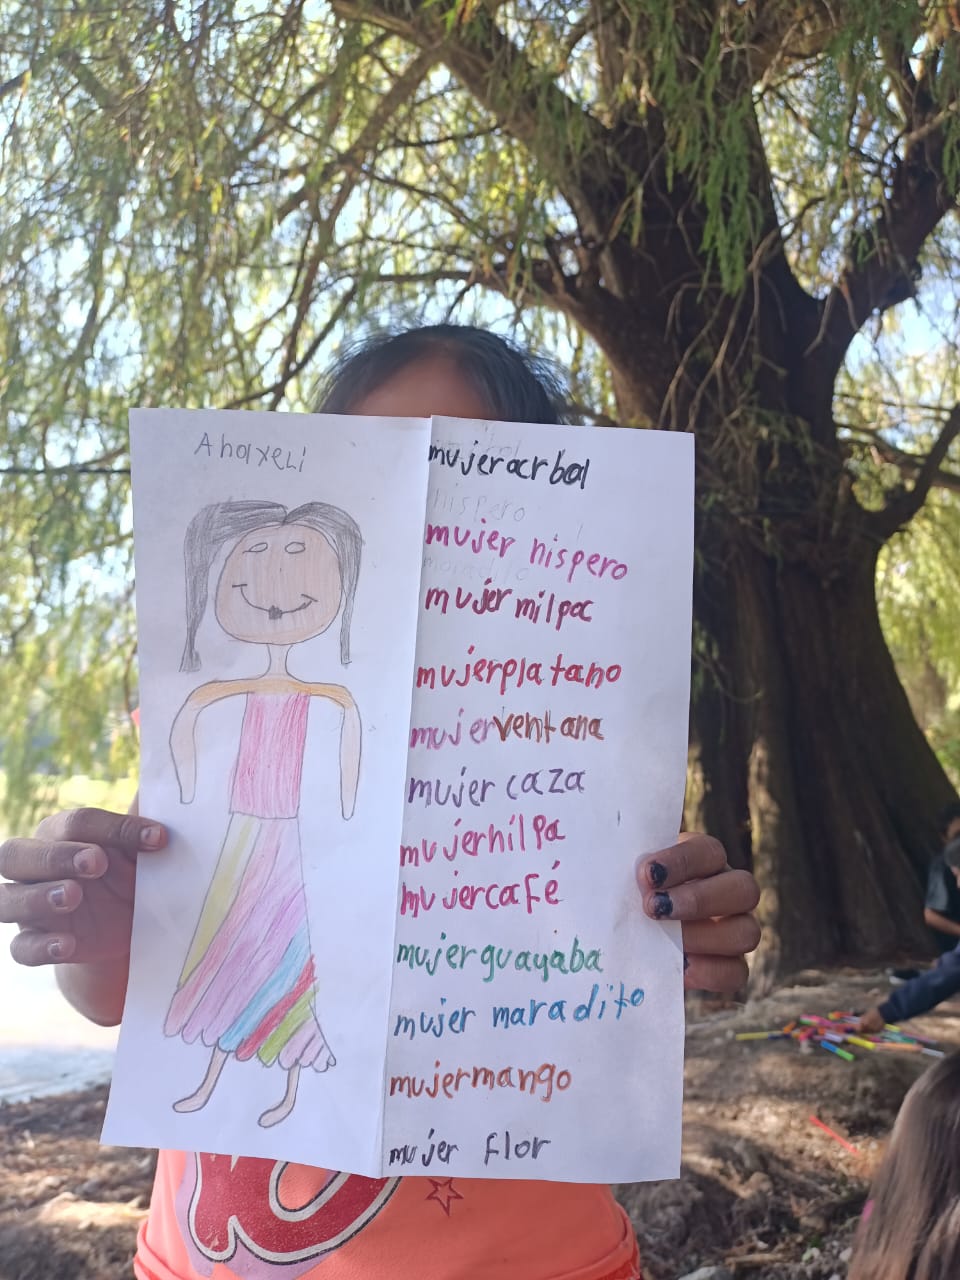 Ahaxeli
mujer arbol
nispero
mujer nispero
moradito
mujer milpa
mujer platano
mujer ventana
mujer caza
mujer hilpa
mujer café
mujer guayaba
mujer maradito
mujer mango
mujer flor